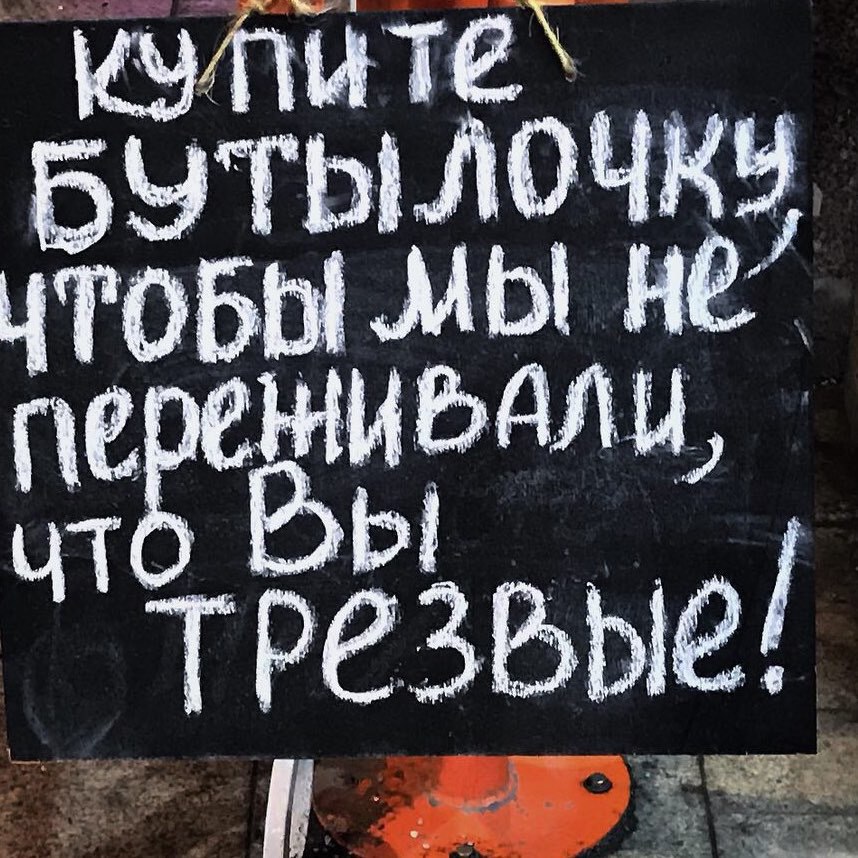 купите
бутылочку,
чтобы мы не
переживали,
что Вы
трезвые!